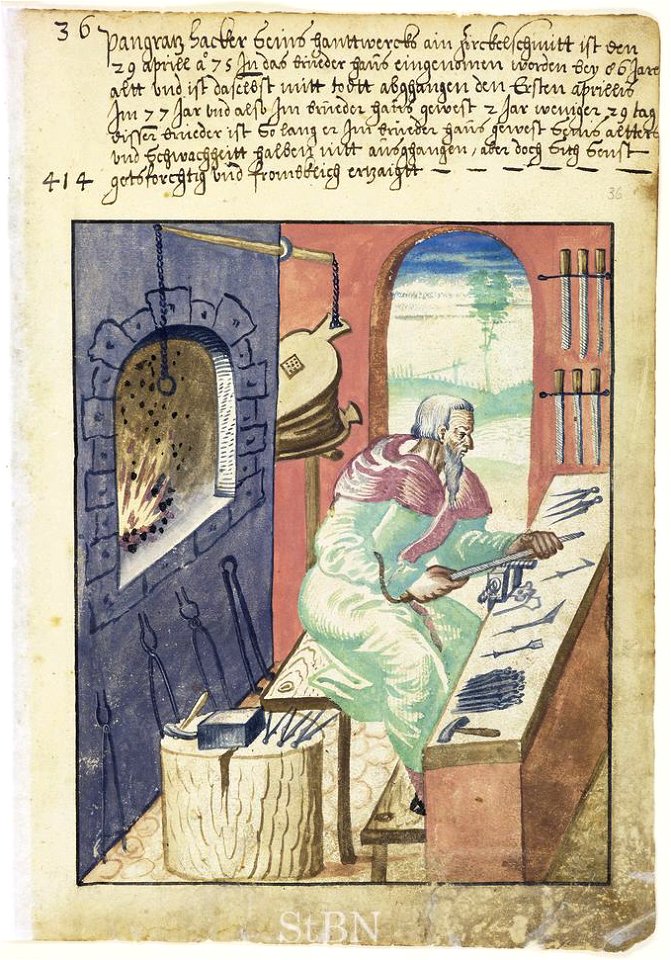 36 Pangratz Hacker Seins hanttwercks ain Zirckelschmitt ist den
29 aprill a° 75 In das brueder haus eingenomen worden bey 86 Jare
altt vnd ist daselbst mitt todtt abghangen den Ersten aprillis
Im 77 Jar vnd also Im brueder haus gewest 2 Jar weniger 29 tag
disser brueder ist So lang er Im brueder haus gewest Seins altters
vnd Schwachheitt halben nitt ausghangen, aber doch Sich Sonst
414 gotsforchtig vnd fromcklich ertzaigtt — — — — — —
36
StBN